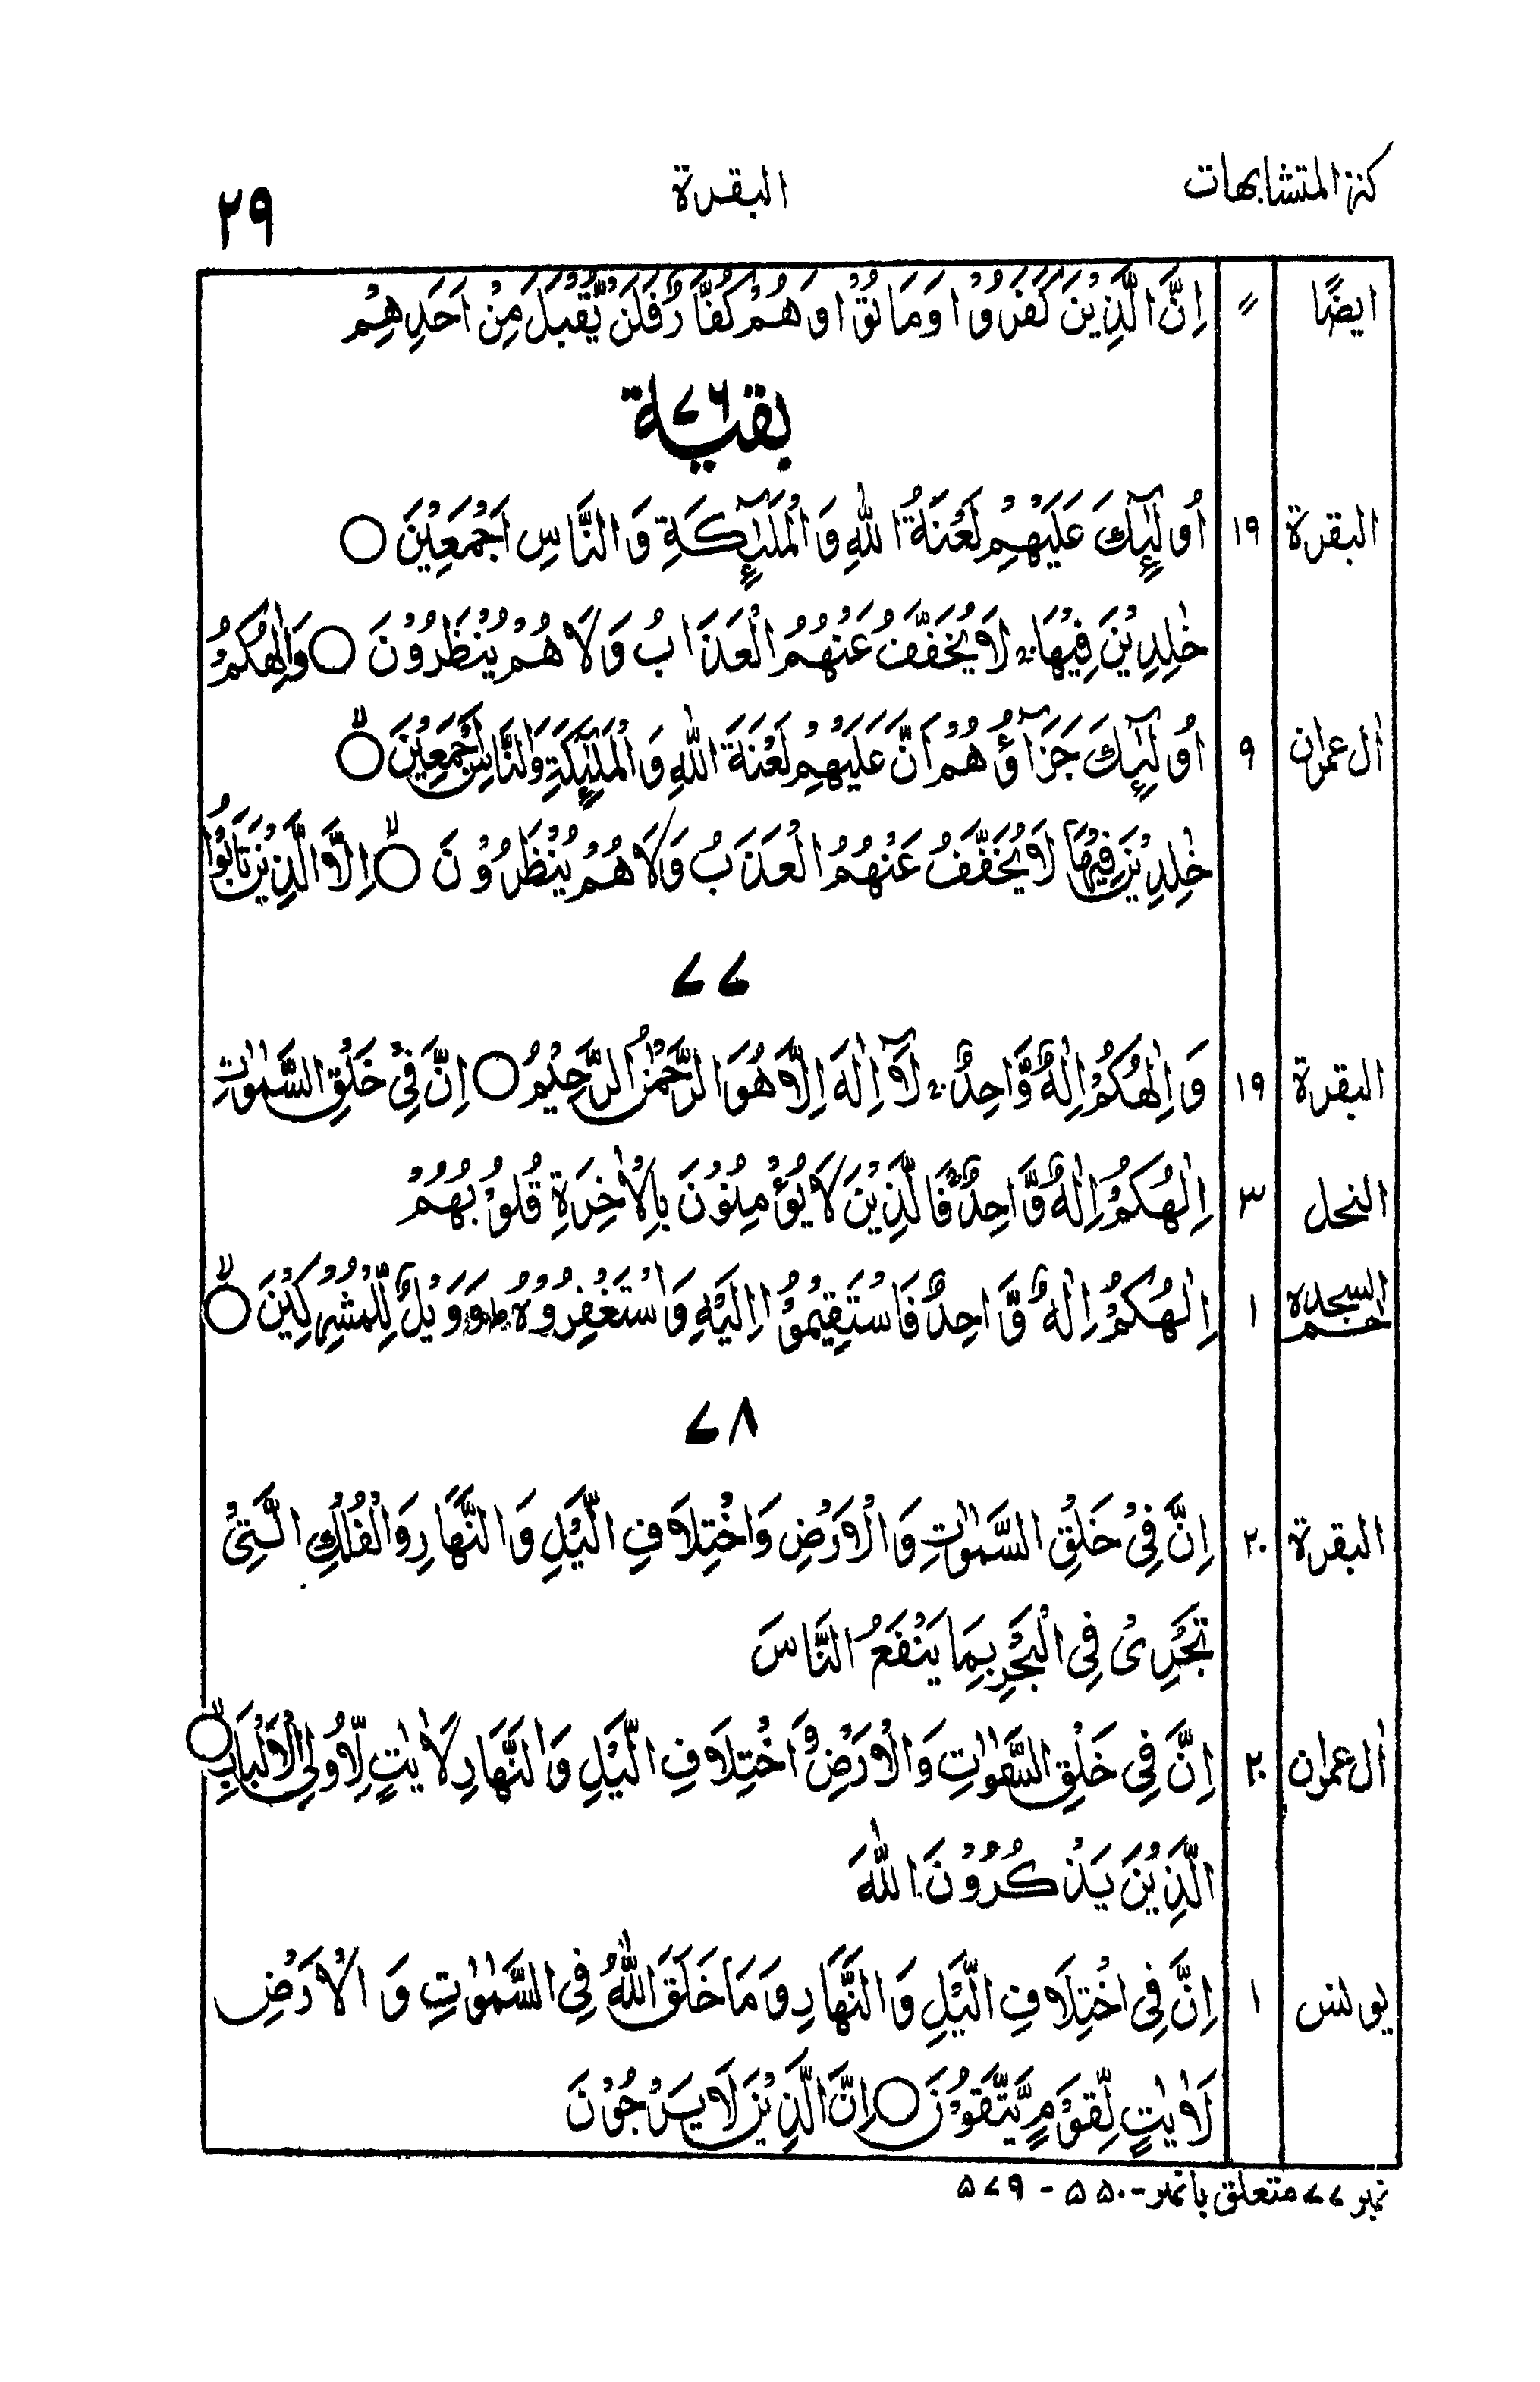 كنز المتشابهات البقرة ٢٩
ايضًا ״ اِنَّ الَّذِيْنَ كَفَرُوْا وَمَاتُوْا وَهُمْ كُفَّارٌ فَلَنْ يُّقْبَلَ مِنْ اَحَدِهِمْ
بقية ٧٦
البقرة ١٩ اُولٰٓئِكَ عَلَيْهِمْ لَعْنَةُ اللّٰهِ وَالْمَلٰٓئِكَةِ وَالنَّاسِ اَجْمَعِيْنَ ○
خٰلِدِيْنَ فِيْهَا ۚ لَا يُخَفَّفُ عَنْهُمُ الْعَذَابُ وَلَا هُمْ يُنْظَرُوْنَ ○ وَاِلٰهُكُمْ
اٰل عمرٰن ٩ اُولٰٓئِكَ جَزَآؤُهُمْ اَنَّ عَلَيْهِمْ لَعْنَةَ اللّٰهِ وَالْمَلٰٓئِكَةِ وَالنَّاسِ اَجْمَعِيْنَ ○ۙ
خٰلِدِيْنَ فِيْهَا لَا يُخَفَّفُ عَنْهُمُ الْعَذَبُ وَلَا هُمْ يُنْظَرُوْنَ ○ۙ اِلَّا الَّذِيْنَ تَابُوْا
٧٧
البقرة ١٩ وَاِلٰهُكُمْ اِلٰهٌ وَّاحِدٌ ۚ لَآ اِلٰهَ اِلَّا هُوَ الرَّحْمٰنُ الرَّحِيْمُ ○ اِنَّ فِيْ خَلْقِ السَّمٰوٰتِ
النحل ٣ اِلٰهُكُمْ اِلٰهٌ وَّاحِدٌ ۚ فَالَّذِيْنَ لَا يُؤْمِنُوْنَ بِالْاٰخِرَةِ قُلُوْبُهُمْ
حٰم السجده ١ اِلٰهُكُمْ اِلٰهٌ وَّاحِدٌ فَاسْتَقِيْمُوْا اِلَيْهِ وَاسْتَغْفِرُوْهُ ؕ وَوَيْلٌ لِّلْمُشْرِكِيْنَ ○ۙ
٧٨
البقرة ٢٠ اِنَّ فِيْ خَلْقِ السَّمٰوٰتِ وَالْاَرْضِ وَاخْتِلَافِ الَّيْلِ وَالنَّهَارِ وَالْفُلْكِ الَّتِيْ
تَجْرِيْ فِي الْبَحْرِ بِمَا يَنْفَعُ النَّاسَ
اٰل عمرٰن ٢٠ اِنَّ فِيْ خَلْقِ السَّمٰوٰتِ وَالْاَرْضِ وَاخْتِلَافِ الَّيْلِ وَالنَّهَارِ لَاٰيٰتٍ لِّاُولِي الْاَلْبَابِ ○ۙ
الَّذِيْنَ يَذْكُرُوْنَ اللّٰهَ
يونس ١ اِنَّ فِي اخْتِلَافِ الَّيْلِ وَالنَّهَارِ وَمَا خَلَقَ اللّٰهُ فِي السَّمٰوٰتِ وَالْاَرْضِ
لَاٰيٰتٍ لِّقَوْمٍ يَّتَّقُوْنَ ○ اِنَّ الَّذِيْنَ لَا يَرْجُوْنَ
نمبر ٧٧ متعلق با نمبر - ۵۵۰ - ۵٧۹